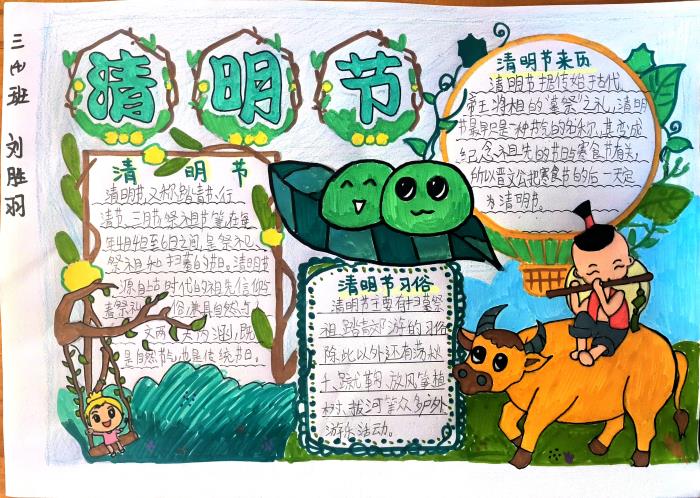 三(4)班 刘胜羽
清明节
清明节
清明节,又称踏青节、行
清节、三月节、祭祖节等,在每
年4月4日至6日之间,是祭祀、
祭祖和扫墓的节日。清明节
源自上古时代的祖先信仰与
春祭礼俗,兼具自然与人
文两大内涵,既
是自然节气,也是传统节日。
清明节来历
清明节据传始于古代
帝王将相的“墓祭”之礼,清明
节最早只是一种节气的名称,其变成
纪念祖先的节日与寒食节有关,
所以晋文公把寒食节的后一天定
为清明节.
清明节习俗
清明节主要有扫墓祭
祖、踏青郊游的习俗
除此以外还有荡秋
千、蹴鞠、放风筝、植
树、拔河等众多户外
游乐活动。